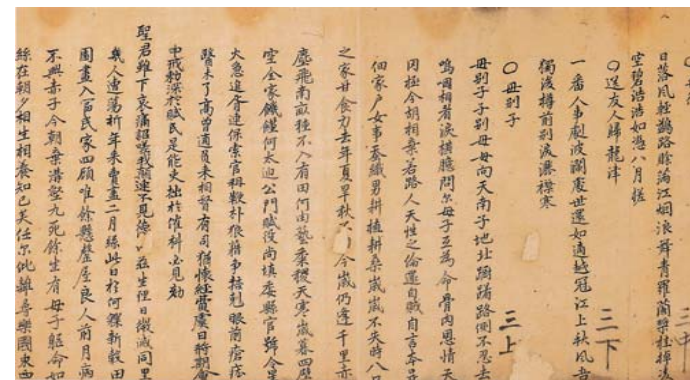 日落風輕鷁路賒蒲江烟浪舞青羅蘭槳桂掉凌
空碧浩浩如憑八月槎
〇送友人歸龍津
一番人事劇波瀾處世還如適越冠江上秋風吾
獨浚樽前別淚灑襟寒
〇母別子
母別子子別母母向天南子地北蹰躕路側不忍去
嗚咽相看淚橫臆問尔母子互為命骨肉恩情天
罔極今胡相棄若路人天性之倫還自賊自言本是
佃家戶女事蠶織男耕植耕桑歲歲不失時八口
之家甘食力去年夏旱秋 今歲仍逢千里赤
塵飛南畝種不入有田何由藝黍稷天寒歲暮四壁
空全家饑饉何太迫公門賦役尚填委縣官號令星
火急追胥連保索官租鞭朴狼藉事掊剋眼前瘡痍
醫未了高曾逋負來相督有司猶懷經營慮日時期會
中戒勑深於賊民是能吏拙於催科必見劾
聖君雖下哀痛詔嗟我顛連不見德 茲生徑日微滅同里
幾人遭蕩析年來賣盡二月絲此日於何糶新穀田
園盡入富民家四顧唯餘懸磬屋良人前月病
不興赤子今朝棄溝壑九死餘生有母子軀命如
絲在朝夕相生相養知已矣任尔仳離尋樂國東西
三上
三下
三中